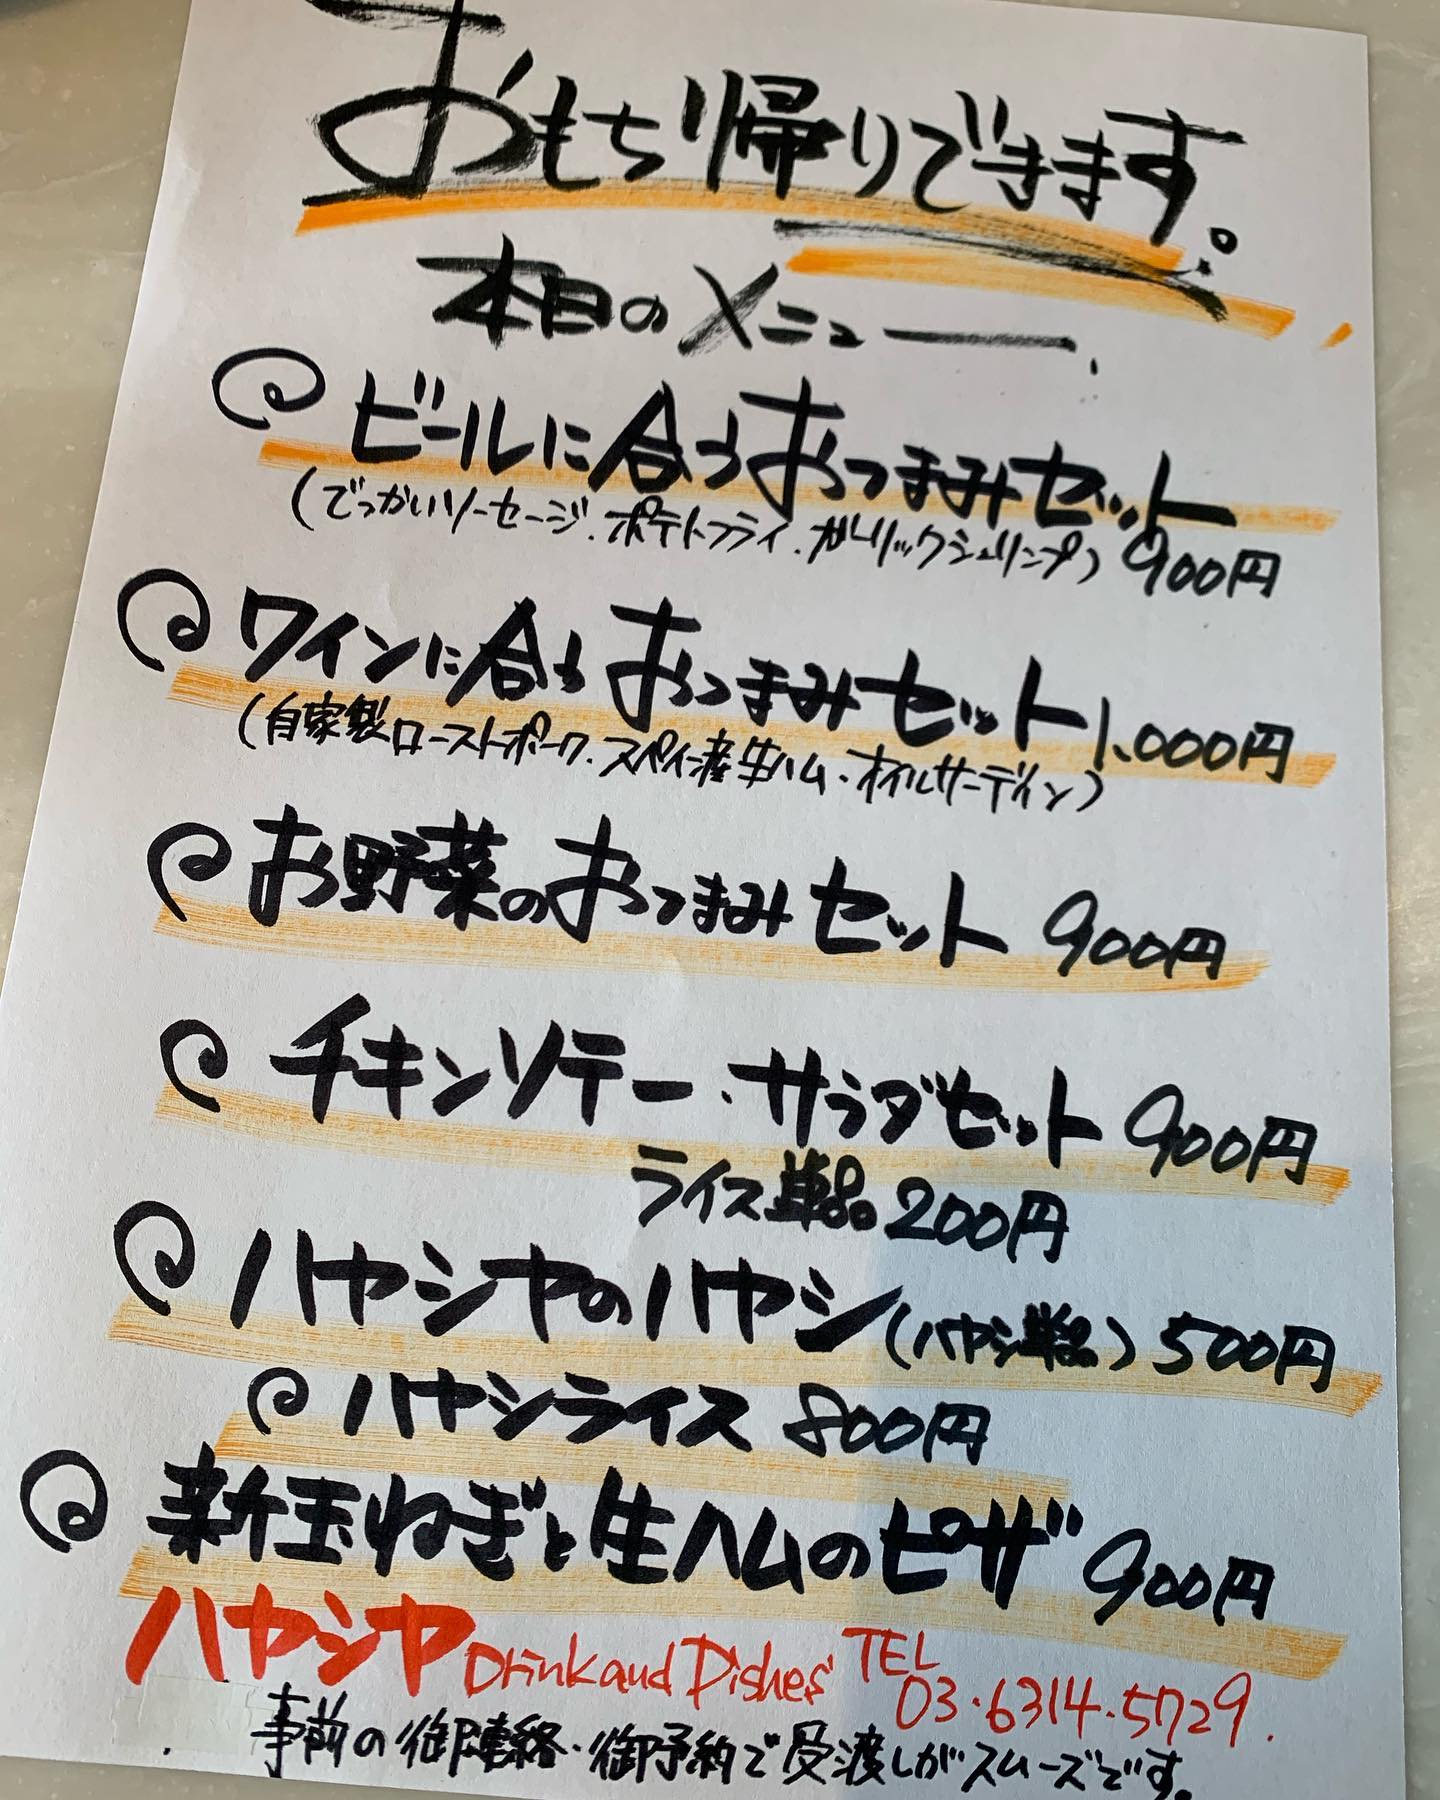 おもち帰りできます。
本日のメニュー
ビールに合うおつまみセット
(でっかいソーセージ.ポテトフライ.ガーリックシュリンプ) 900円
ワインに合うおつまみセット 1,000円
(自家製ローストポーク.スペイン産生ハム.オイルサーディン)
お野菜のおつまみセット 900円
チキンソテー.サラダセット 900円
ライス単品 200円
ハヤシヤのハヤシ(ハヤシ単品) 500円
ハヤシライス 800円
新玉ねぎと生ハムのピザ 900円
ハヤシヤ Drink and Dishes TEL
03.6314.5729.
事前の御連絡.御予約で受渡しがスムーズです。